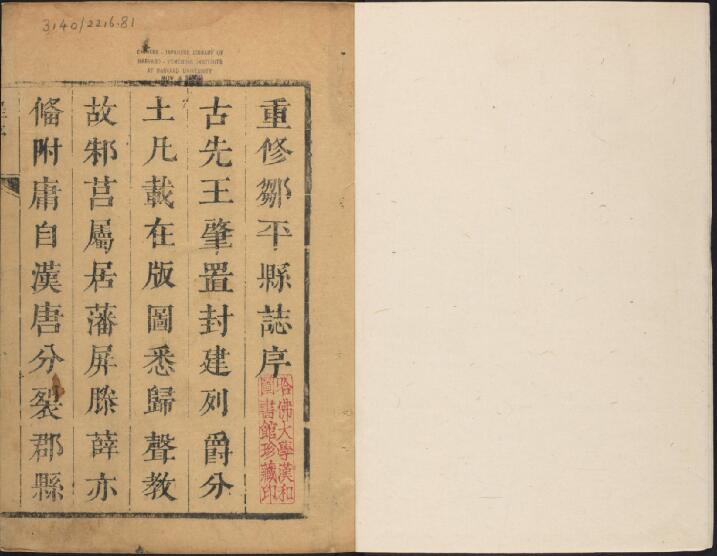 3140/2216.81
CHINESE - JAPANESE LIBRARY OF
HARVARD - YENCHING INSTITUTE
AT HARVARD UNIVERSITY
NOV
重修鄒平縣誌序
古先王肇置封建列爵分
土凡載在版圖悉歸聲教
故邾莒屬居藩屏滕薛亦
偹附庸自漢唐分裂郡縣
哈佛大學漢和
圖書館珍藏印